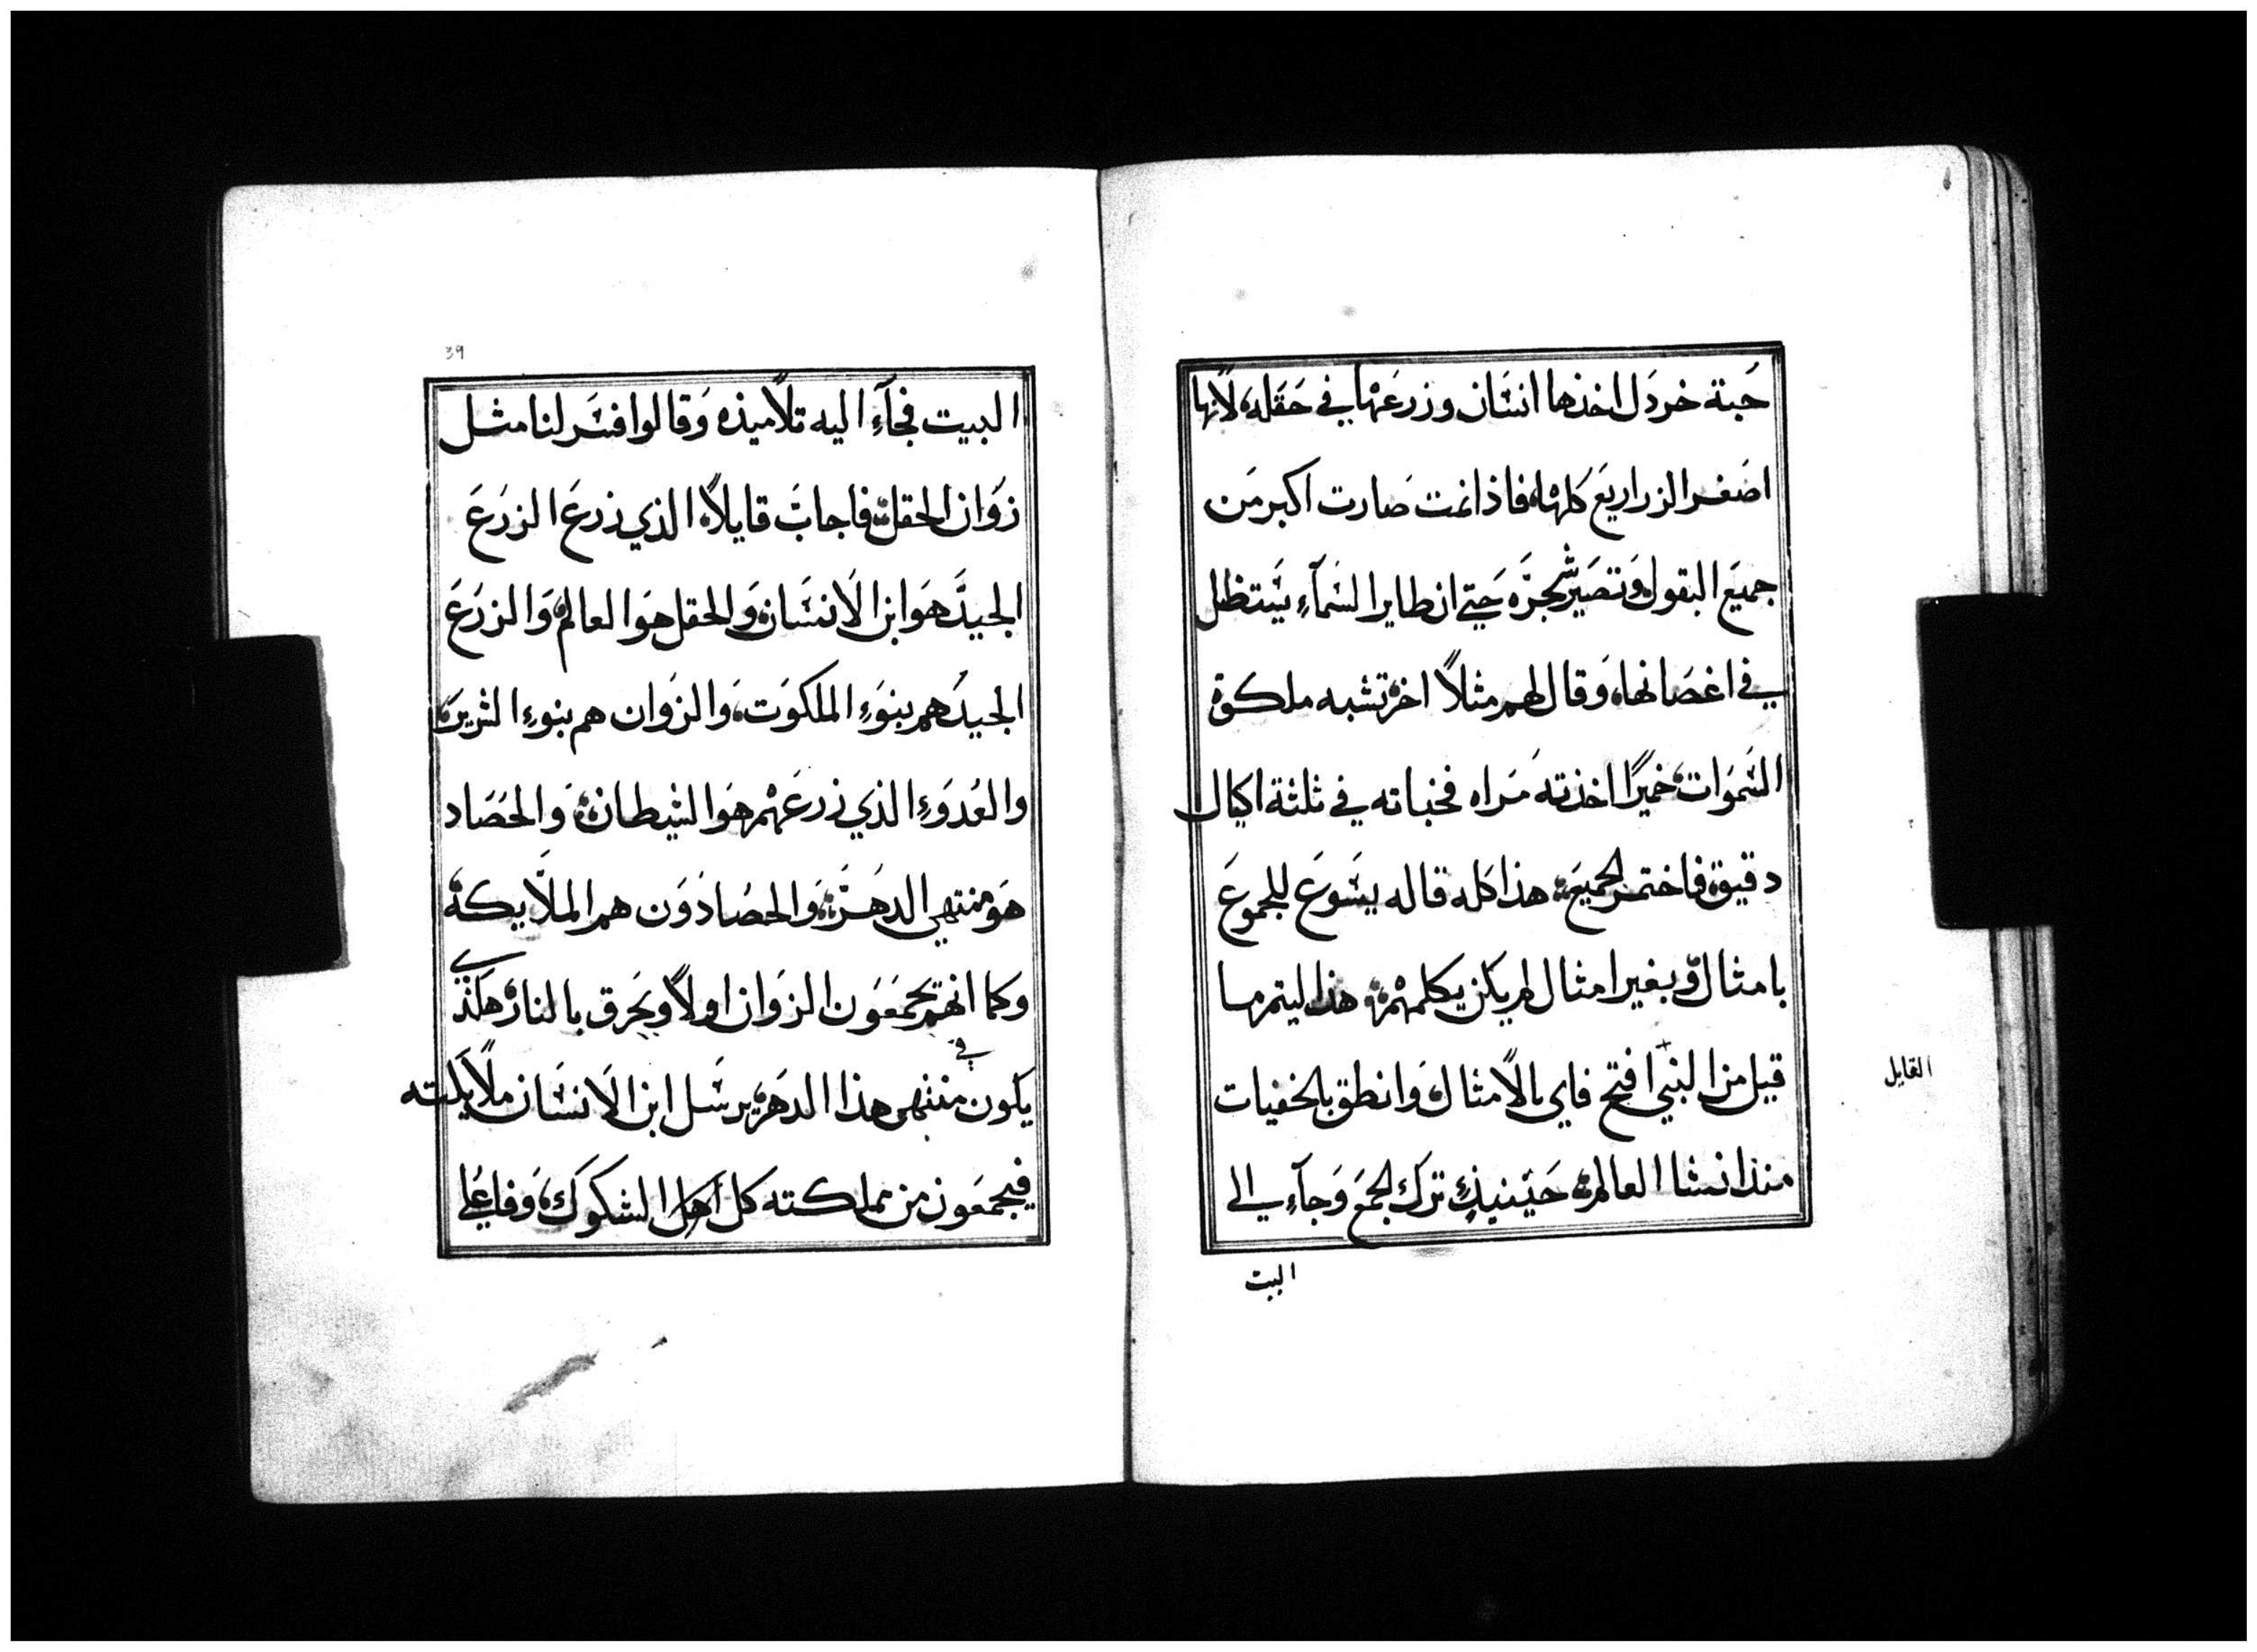 حبة خردل اخذها انسان وزرعها في حقله، لانها
اصغر الزراريع كلها، فاذا نمت صارت اكبر من
جميع البقول، وتصير شجرة حتي ان طاير السمآء يستظل
في اغصانها، وقال لهم مثلاً اخر، تشبه ملكوة
السموات، خميرًا اخذته مراه فخباته في ثلثة اكيال
دقيق، فاختمر الجميع، هذا كله قاله يشوع للجموع
بامثال، وبغير امثال لم يكن يكلمهم، هذا ليتم ما
قيل من النبي افتح فاي بالامثال، وانطق بالخفيات
القايل
منذ انشا العالم، حينيذٍ ترك الجمع وجآء الي
البيت
39
البيت فجآء اليه تلاميذه وقالوا فسر لنا مثل
زوان الحقل، فاجاب قايلاً، الذي زرع الزرع
الجيد هو ابن الانسان، والحقل هو العالم، والزرع
الجيد هم بنوء الملكوت، والزوان هم بنوء الشرير،
والعدوء الذي زرعهم هو الشيطان، والحصاد
هو منتهي الدهر، والحصادون هم الملايكة،
وكما انهم يجمعون الزوان اولاً ويحرق بالنار، هكذي
يكون في منتهي هذا الدهر، يرسل ابن الانسان ملايكته
فيجمعون من مملكته كل اهل الشكوك، وفاعلي